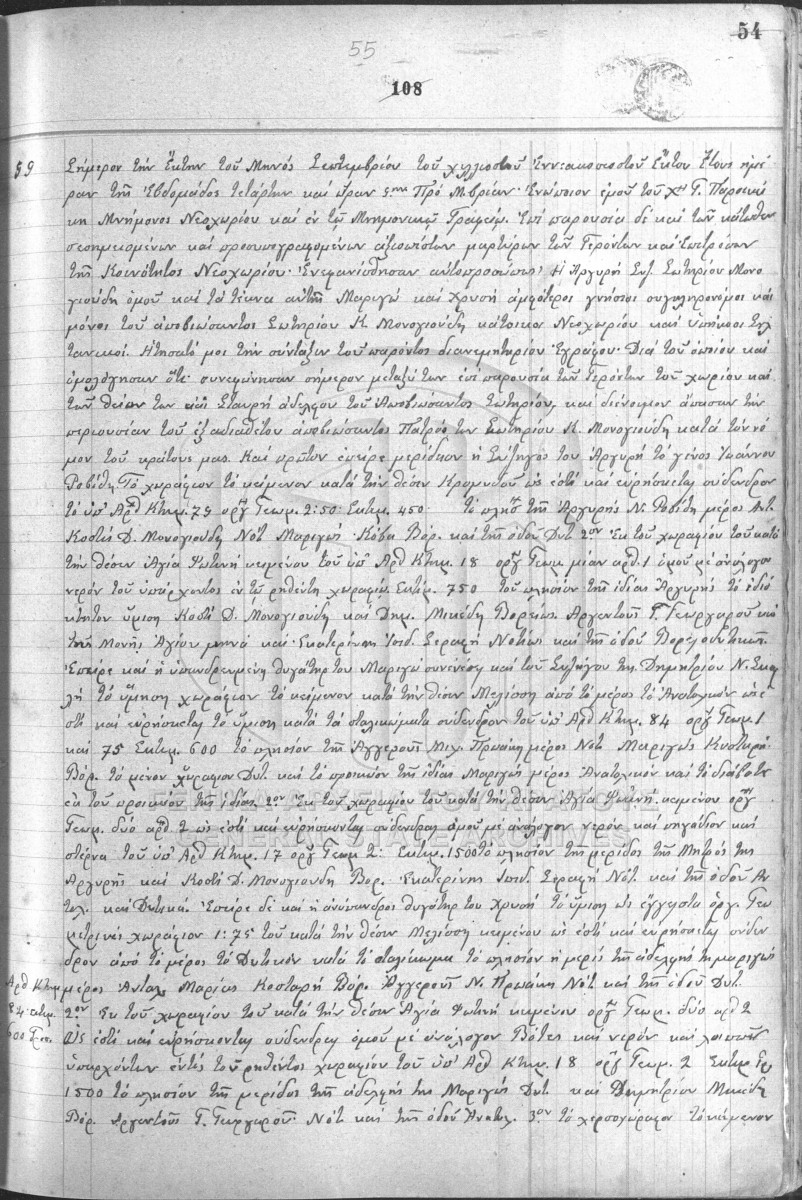 54
55
108
59 Σήμερον τὴν ἕκτην τοῦ Μηνός Σεπτεμβρίου τοῦ χιλλιοστοῦ ἐννεακοσιοστοῦ ἕκτου ἔτους ἡμέ
ραν τῆς ἑβδομάδος τετάρτην καὶ ὥραν Πρό Μ.βρίαν. Ἐνώπιον ἐμοῦ τοῦ Γ. Παροικά
κη Μνήμονος Νεοχωρίου καὶ ἐν τῷ Μνημονικῷ Γραφείῳ. Ἐπί παρουσία δέ καὶ τῶν κάτωθεν
σεσημειωμένων καὶ προσυπογραφομένων ἀξιοπίστων μαρτύρων τῶν Γερόντων καὶ Ἐπιτρόπων
τῆς Κοινότητος Νεοχωρίου. Ἐνεφανίσθησαν αὐτοπροσώπως Ἡ Ἀργυρή Συζ. Σωτηρίου Μονο
γιούδη ὁμοῦ καὶ τά τέκνα αὐτῆς Μαριγώ καὶ Χρυσή ἀμφότεροι γνήσιοι συγκληρονόμοι καί
μόνοι τοῦ ἀποβιώσαντος Σωτηρίου Κ. Μονογιούδη κάτοικοι Νεοχωρίου καὶ ὑπήκοοι
Ἡτησατό μοι τὴν σύνταξιν τοῦ παρόντος διανεμητηρίου ἐγράφου. Διά τοῦ ὁποίου καὶ
ὁμολόγησαν ὅτι συνεφώνησαν σήμερον μεταξύ των ἐπί παρουσία τῶν Γερόντων τοῦ χωρίου καὶ
τῶν θείων των Σταυρῆ ἀδελφου τοῦ Ἀποβιώσαντος Σωτηρίου, καὶ διένοιμον ἅπασαν τὴν
περιουσίαν τοῦ ἐξ ἀδιαθέτου ἀποβιώσαντος Πατρός των Σωτηρίου Κ. Μονογιούδη κατά τόν νό
μον τοῦ κράτους μας. Καὶ πρῶτον ἐπείρε μερίδιον ἡ Σύζηγός του Ἀργυρή τό γένος Ἰωάννου
Ροβίθη. Τό χωράφιον τό κείμενον κατά τὴν θέσιν ὡς ἐστί καὶ εὑρήσκεται σύνδενδρον
τό ὑπ' Ἀρθ Κτημ. 79 ὀργ Γεωμ. 2:50: Εκτιμ. 450 τό πλησ τῆς Ἀργυρῆς Ν. Ροβίθη μέρος Ἀντ.
Κοστῆ Δ. Μονογιούδη Νότ Μαριγῶς Κόβα Βόρ. καὶ τῆς ὁδοῦ Δυτ. 2ον Ἐκ τοῦ χωραφίου τοῦ κατά
τὴν θέσιν Ἁγία Φωτινή κειμένου τοῦ ὑπ Ἀρθ Κτημ. 18 ὀργ Γεωμ. μίαν ἀρθ. 1 ὁμοῦ μέ ἀνάλογον
νερόν τοῦ ὑπάρχοντος ἐν τῷ ρηθέντι χωραφίῳ. Εκτιμ. 750 τοῦ πλησίον τῆς ἰδίας Ἀργυρῆς τό ἐδιό
κτητον ὕμιση Κοστῆ Δ. Μονογιούδη καὶ Δημ. Μικέδη Βορείως. Ἀργεντοῦς Γ. Γεωργαροῦ καὶ
τῆς Μονῆς Ἁγίου μηνᾶ καὶ Ἐκατερίνης Ἰσιδ. Σεραφή Νοτίως καὶ τῆς ὁδοῦ Βορειοδυτικῶς.
Ἐπείρε καὶ ἡ ὑπανδρευμένη θυγάτηρ του Μαριγώ συνενέσει καὶ τοῦ Συζήγου της Δημητρίου Ν.
τό ὕμηση χωράφιον τό κείμενον κατά τὴν θέσιν Μελίσση ἀπό τό μέρος τό Ἀνατολικόν ὡς ἐ
στί καὶ εὑρήσκεται τό ὕμιση κατά τά σταλικώματα σύνδενδρον τοῦ ὑπ Ἀρθ Κτημ. 84 ὀργ Γεωμ. 1
καὶ 75 Εκτιμ. 600 τό πλησίον τῆς Ἀγγεροῦς Μιχ. Πρωάκη μέρος Νότ Μαριγῶς Κωσταρῆ
Βόρ. τό μένον χωραφιον Δυτ. καὶ τό προικιον τῆς ἰδίας Μαριγῶς μέρος Ἀνατολικόν καὶ τό διάβατι
ἐκ τοῦ προικίου τῆς ἰδίας. 2ον Ἐκ τοῦ χωραφίου τοῦ κατά τὴν θέσιν Ἁγία Φωτινή κειμένου ὀργ
Γεωμ. δύο ἀρθ. 2 ὡς ἐστί καὶ εὑρήσκονται σύνδενδρα ὁμοῦ μέ ἀνάλογον νερόν καὶ πηγάδιον καὶ
στέρνα τοῦ ὑπ Ἀρθ Κτημ. 17 ὀργ Γεωμ 2: Εκτιμ. 1500 τό πλησίον τῆς μερίδος τῆς Μητρός της
Ἀργυρῆς καὶ Κοστῆ Δ. Μονογιούδη Βορ. Ἐκατερίνης Ἰσιδ. Σεραφή Νότ. καὶ τῆς ὁδοῦ Αν
τολ. καὶ Δυτικά. Ἐπείρε δέ καὶ ἡ ἀνύπανδρος θυγάτηρ του Χρυσή τό ὕμιση ὡς ἔγγιστα ὀργ. Γεω
μετρικές χωράφιον 1:75 τοῦ κατά τὴν θέσιν Μελίσση κειμένου ὡς ἐστί καὶ εὑρήσκεται σύνδεν
δρον ἀπό τό μέρος τό Δυτικόν κατά τό σταλίκωμα τό πλησίον ἡ μερίς τῆς ἀδελφῆς τη μαριγῶς
Ἀρθ Κτημ μέρος Ἀντολ Μαρίας Κοσταρῆ Βόρ. Ἀγγεροῦς Ν. Πρωάκη Νότ καὶ τῆς ὁδοῦ Δυτ.
84 Εκτιμ. 2ον Ἐκ τοῦ χωραφίου τοῦ κατά τὴν θέσιν Ἁγία Φωτινή κειμένου ὀργ Γεωμ. δύο ἀρθ 2
600 Γρσ. Ὡς ἐστί καὶ εὑρήσκονται σύνδενδρα ὁμοῦ μέ ἀνάλογον καὶ νερόν καὶ λοιπῶν
ὑπαρχόντων ἐντός τοῦ ρηθέντος χωραφίου τοῦ ὑπ Ἀρθ Κτημ. 18 ὀργ Γεωμ. 2 Εκτιμ Γρ
1500 τό πλησίον τῆς μερίδος τῆς ἀδελφῆς της Μαριγῶς Δυτ. καὶ Δημητρίου Μικέδη
Βόρ. Ἀργεντοῦς Γ. Γεωργαροῦ Νότ καὶ τῆς ὁδοῦ Ἀνατολ. 3ον τό χερσοχώραφον τό κείμενον